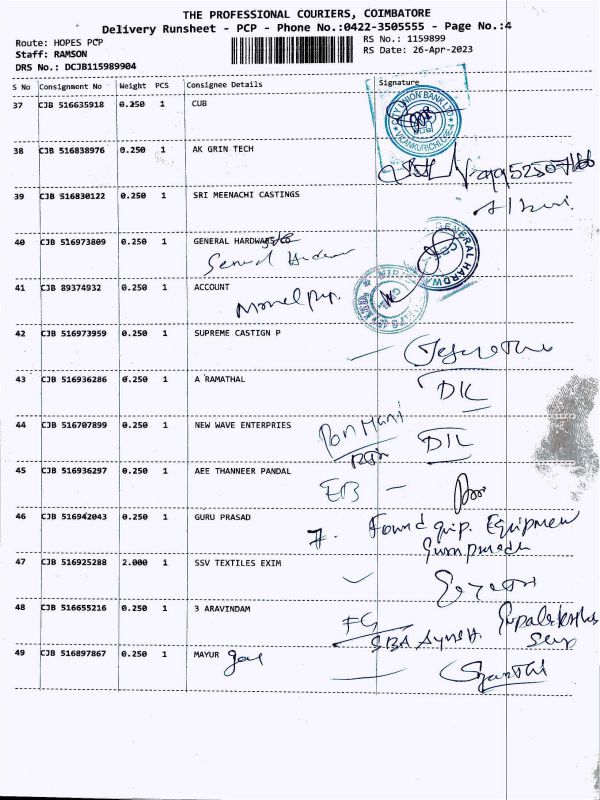 THE PROFESSIONAL COURIERS, COIMBATORE
Delivery Runsheet - PCP - Phone No.:0422-3505555 - Page No.:4
Route: HOPES PCP
RS No.: 1159899
Staff: RAMSON
RS Date: 26-Apr-2023
DRS No.: DCJB115989904
S No Consignment No Weight PCS Consignee Details Signature
37 CJB 516635918 0.250 1 CUB
CITY UNION BANK LTD
38 CJB 516838976 0.250 1 AK GRIN TECH
39 CJB 516830122 0.250 1 SRI MEENACHI CASTINGS
40 CJB 516973809 0.250 1 GENERAL HARDWARES
GENERAL HARDWA
41 CJB 89374932 0.250 1 ACCOUNT
42 CJB 516973959 0.250 1 SUPREME CASTIGN P
43 CJB 516936286 0.250 1 A RAMATHAL
DIL
44 CJB 516707899 0.250 1 NEW WAVE ENTERPRIES
Pon Mani
DIL
45 CJB 516936297 0.250 1 AEE THANNEER PANDAL
EB -
46 CJB 516942043 0.250 1 GURU PRASAD
7. Found Equipmen
47 CJB 516925288 2.000 1 SSV TEXTILES EXIM
48 CJB 516655216 0.250 1 3 ARAVINDAM
49 CJB 516897867 0.250 1 MAYUR
Shanthi